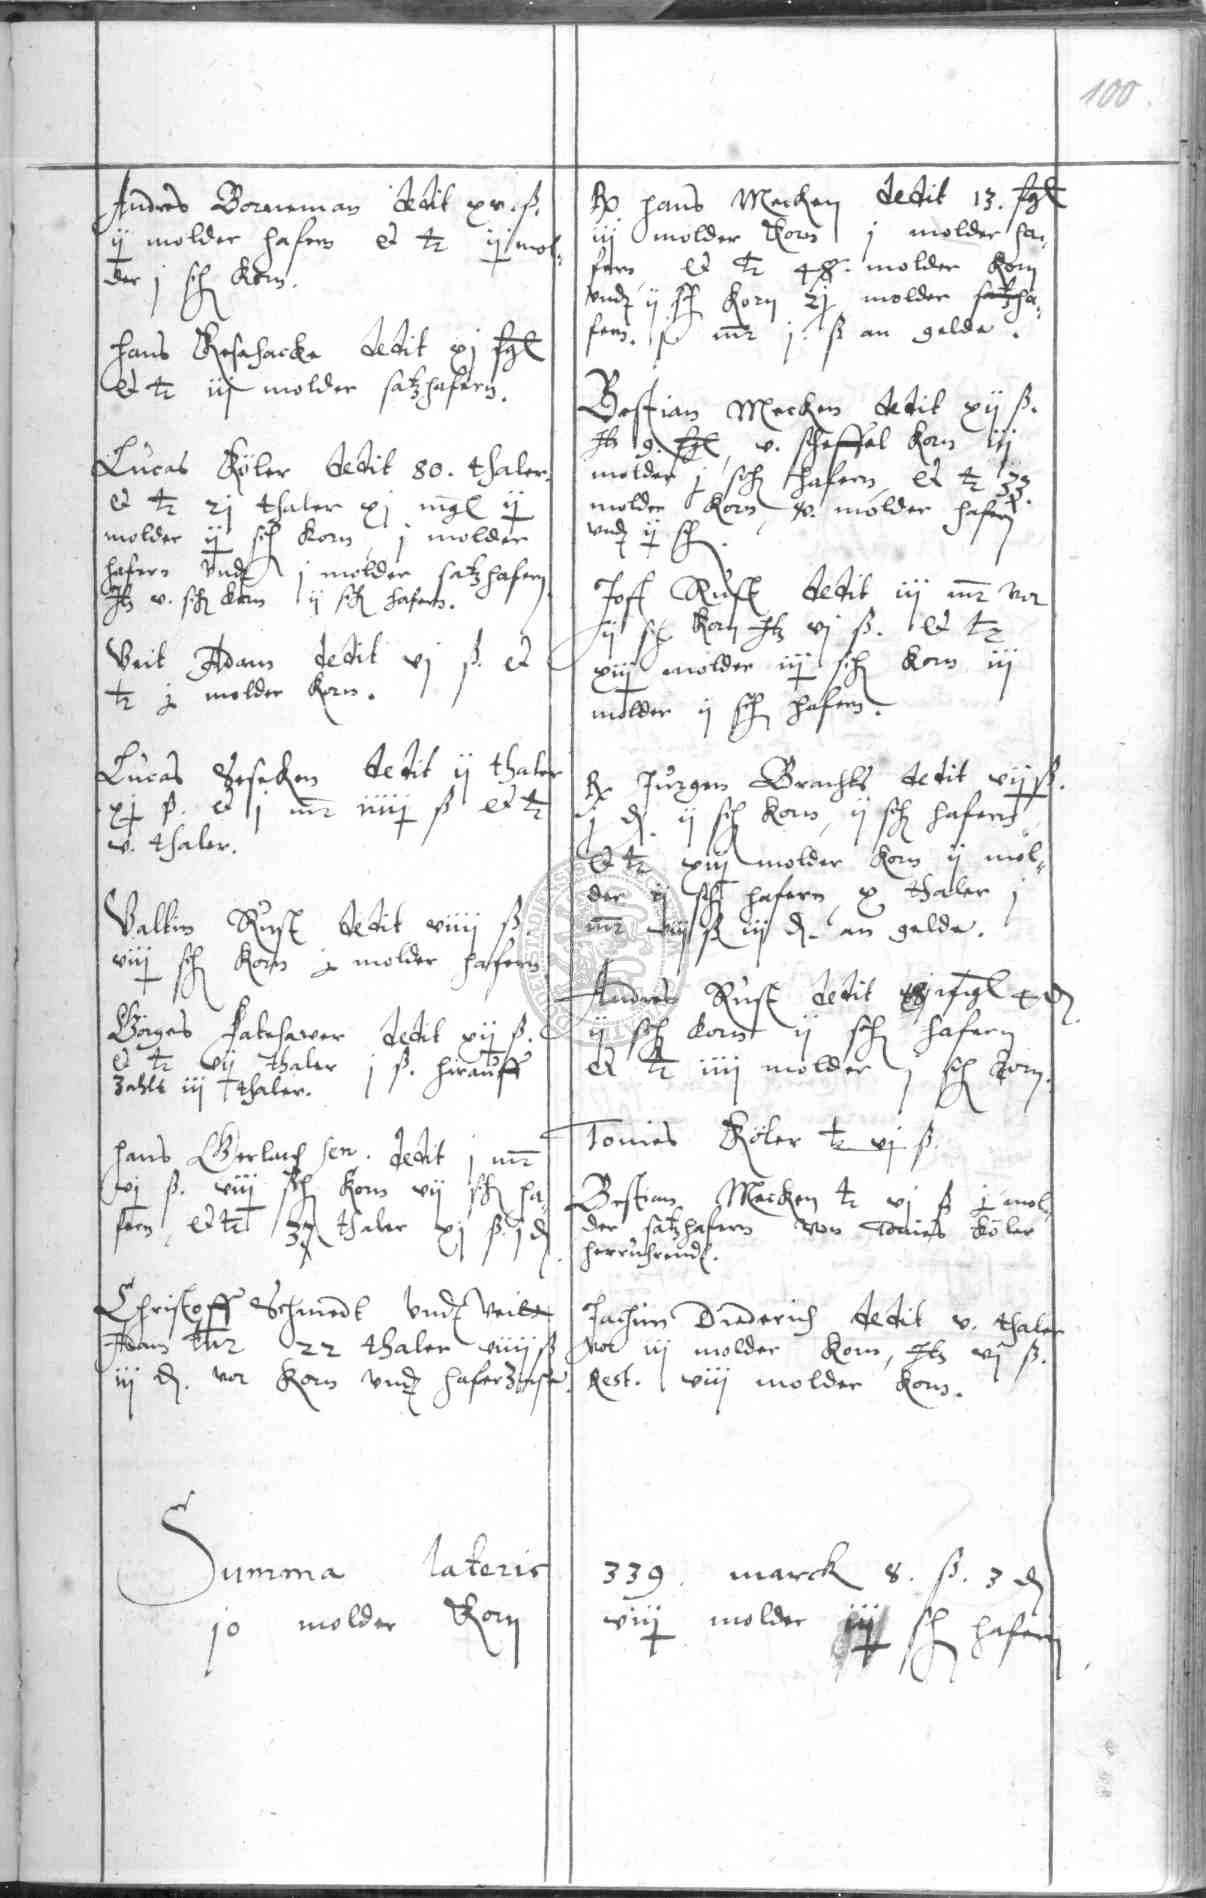 100.
Andres Borneman dedit xv. ß.
ij molder hafern et tz ij mol-
der j sch Korn.
Hans Resehacke dedit xj fgl
et tz iij molder satzhafern.
Lucas Köler dedit 80. thaler.
et tz 2j thaler xj mgl ij
molder ij sch Korn, j molder
hafern Vnd j molder satzhafern
Jtz v. sch Korn ij sch hafern.
Veit Adam dedit vj ß. et
tz j molder Korn.
Lucas Geseken dedit ij thaler
xj ß. et j mr iiij ß et tz
v. thaler.
Valtin Rust dedit viiij ß.
viij sch Korn j molder hafern
Görges dedit xij ß.
et tz vij thaler j ß. hirauff
zahlt iij thaler.
Hans Gerlach sen. dedit j mr
vj ß. viij sch Korn vij sch ha-
fern, et tz thaler xj ß. j d.
Christoff Schmedt Vnd Veit
Adam tz 22 thaler viiij ß
iij d. vor Korn Vnd haferzinse.
Rx Hans Mecken dedit 13. fgl
iij molder Korn j molder ha-
fern, et tz 48. molder Korn
Vnd ij sch Korn 2j molder satzha-
fern. j mr j. ß an gelde.
Bestian Mecken dedit xij ß.
Jtz 9. fgl, v. scheffel Korn iij
molder j sch hafern, et tz 33.
molder Korn, v. molder hafern
Vnd ij sch.
Jost Rust dedit iij mr vor
ij sch Korn Jtz vj ß. et tz
xiij molder iij sch Korn iij
molder ij sch hafern.
Rx Jurgen Brachts dedit vij ß.
j d. ij sch Korn, ij sch hafern
et tz xiij molder Korn ij mol-
der ij sch hafern, x thaler j
mr viij ß iij d. an gelde.
Andres Rust dedit fgl 4 d.
ij sch Korn ij sch hafern
et tz iiij molder j sch Korn.
Tonies Köler tz vj ß.
Bestian Mecken tz vj ß j mol-
der satzhafern von Tonies Köler
herruhrend.
Jachim Diederich dedit v. thaler
vor iij molder Korn, Jtz vj ß.
Rest. viij molder Korn.
Summa lateris 339. marck 8. ß. 3 d
jo molder Korn viij molder iij sch hafern